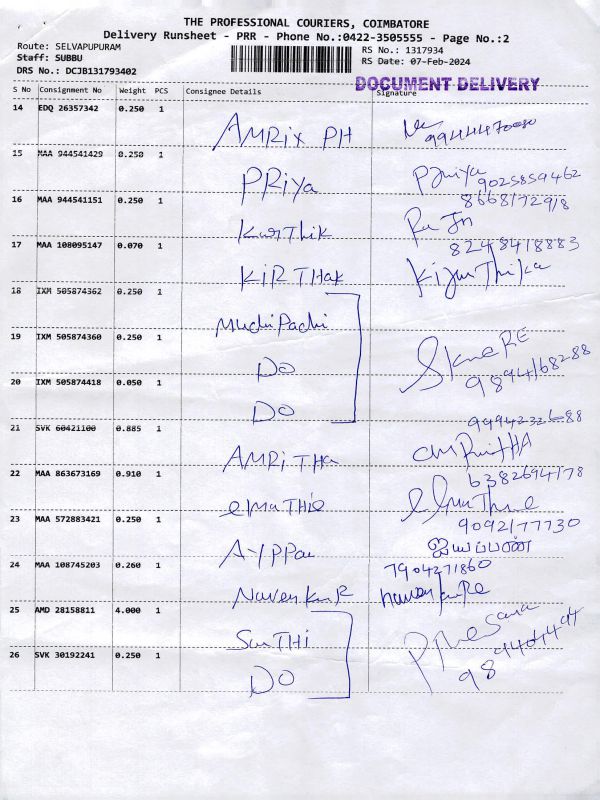 THE PROFESSIONAL COURIERS, COIMBATORE
Delivery Runsheet - PRR - Phone No.:0422-3505555 - Page No.:2
Route: SELVAPUPURAM
Staff: SUBBU
DRS No.: DCJB131793402
RS No.: 1317934
RS Date: 07-Feb-2024
DOCUMENT DELIVERY
S No Consignment No Weight PCS Consignee Details Signature
14 EDQ 26357342 0.250 1
AMRIX PH
15 MAA 944541429 0.250 1
PRiya Priya
9025859462
16 MAA 944541151 0.250 1
8668172918
KarThik
17 MAA 108095147 0.070 1
8248418883
KiRTHak
18 IXM 505874362 0.250 1
19 IXM 505874360 0.250 1
DO
20 IXM 505874418 0.050 1
DO
21 SVK 60421100 0.885 1
AMRiTHa
22 MAA 863673169 0.910 1
6382694178
23 MAA 572883421 0.250 1
9092177730
AyPPan ஐயப்பன்
24 MAA 108745203 0.260 1
7904271860
25 AMD 28158811 4.000 1
SunTHi
26 SVK 30192241 0.250 1
DO